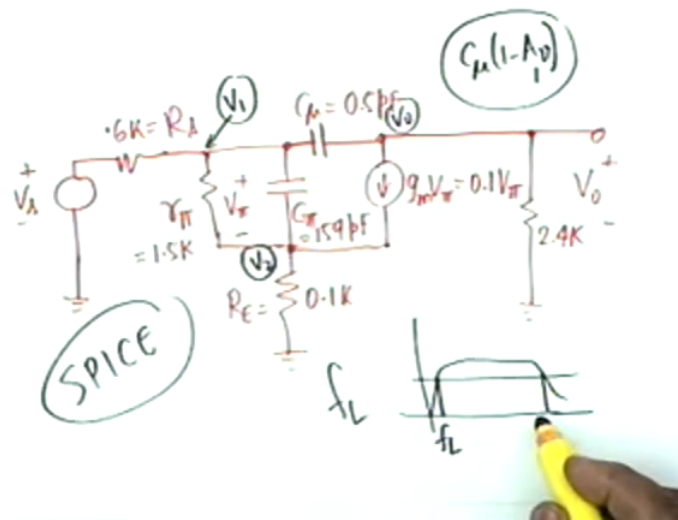 Cμ(1-Av)
V1
Cμ = 0.5pF
V0
.6K = Rs
+
Vs
-
rπ
= 1.5K
+
Vπ
-
Cπ
= 159pF
gmVπ = 0.1Vπ
+
V0
-
2.4K
V2
RE = 0.1K
SPICE
fL
fL